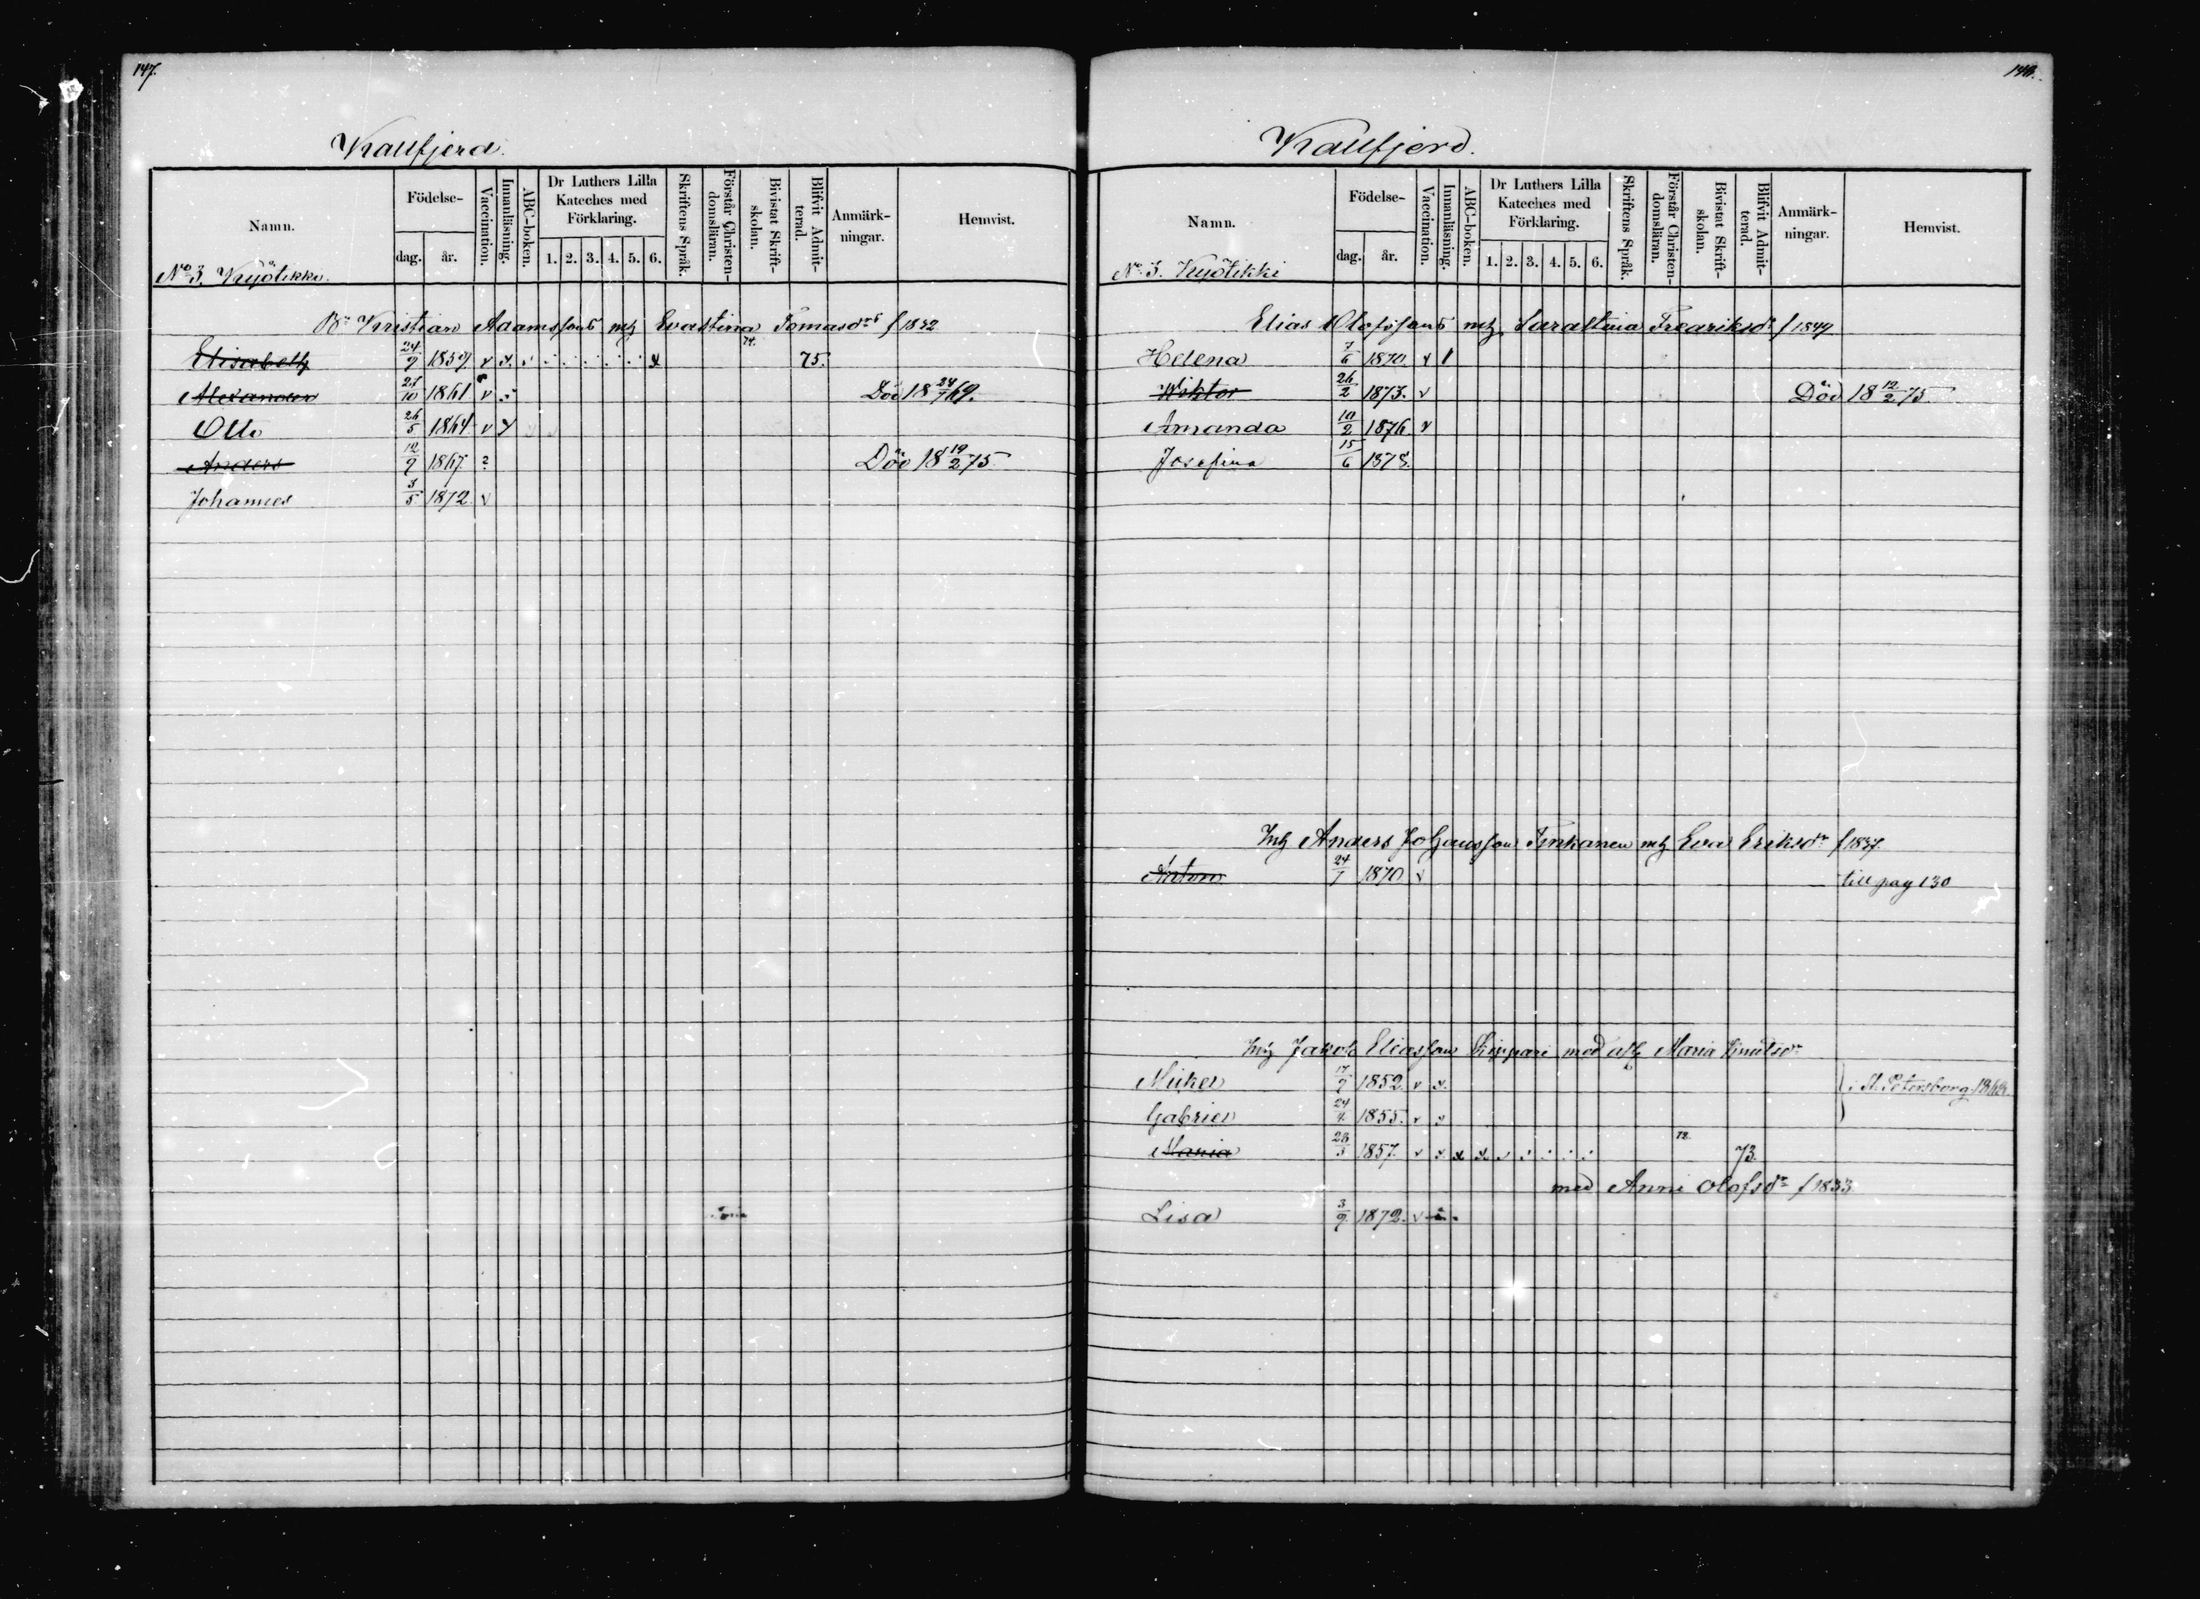 147.
Kallfjerd.
Namn.
Födelse-
dag.
år.
Vaccination.
Innanläsning.
ABC-boken.
Dr Luthers Lilla
Kateches med
Förklaring.
1. 2. 3. 4. 5. 6.
Skriftens Språk.
Förstår Christen-
domsläran.
Bivistat Skrift-
skolan.
Blifvit Admit-
terad.
Anmärk-
ningar.
Hemvist.
No 3.
Kristian Adamsson mh Evastina Tomasdr f 1832
Elisabeth 24/9 1859 v x 74. 75.
Alexander 21/10 1861 v Död 18 /69.
Otto 26/5 1864 v x
Anders 12/9 1867 ? Död 18 19/2 75
Johannes 3/5 1872 v
148.
Kallfjerd.
Namn.
Födelse-
dag.
år.
Vaccination.
Innanläsning.
ABC-boken.
Dr Luthers Lilla
Kateches med
Förklaring.
1. 2. 3. 4. 5. 6.
Skriftens Språk.
Förstår Christen-
domsläran.
Bivistat Skrift-
skolan.
Blifvit Admit-
terad.
Anmärk-
ningar.
Hemvist.
No 3.
Elias Olofsson mh Sarastina Fredriksdr f 1849
Helena 7/6 1870. v
Wiktor 26/2 1873. v Död 18 12/2 75
Amanda 10/2 1876 v
Josefina 15/6 1878.
Anders Johansson mh Eva Eriksdr f 1837.
Anton 24/1 1870 v till pag 130
Jakob Eliasson med Maria Knutsdr
Mickel 17/9 1852. v x. i St. Petersborg
Gabriel 24/4 1855. v
Maria 28/3 1857. v x x x 72. 73.
med Anna Olofsdr f 1833
Lisa 3/9 1872. v